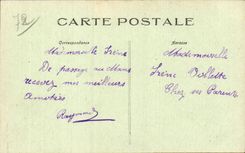 72
CARTE POSTALE
Correspondance
Adresse
Mademoiselle Irène
De passage au Mans
recevez mes meilleurs
amitiés
Raymond
Mademoiselle
Irène
Chez ses Parents